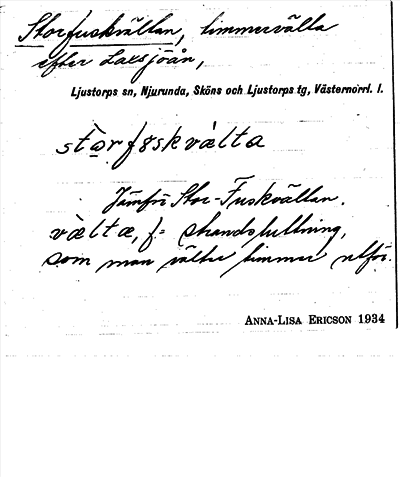 Storfuskvältan, timmervälta
efter Laxsjöån,
Ljustorps sn, Njurunda, Sköns och Ljustorps tg, Västernorrl. l.
Jämför Stor-Fuskvältan.
vælta, f= strandsluttning,
som man välter timmer utför.
ANNA-LISA ERICSON 1934